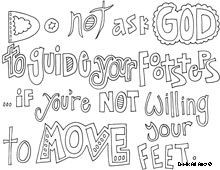 Do not ask GOD
to guide your Footsteps
... if you're NOT willing
to MOVE your
FEET.